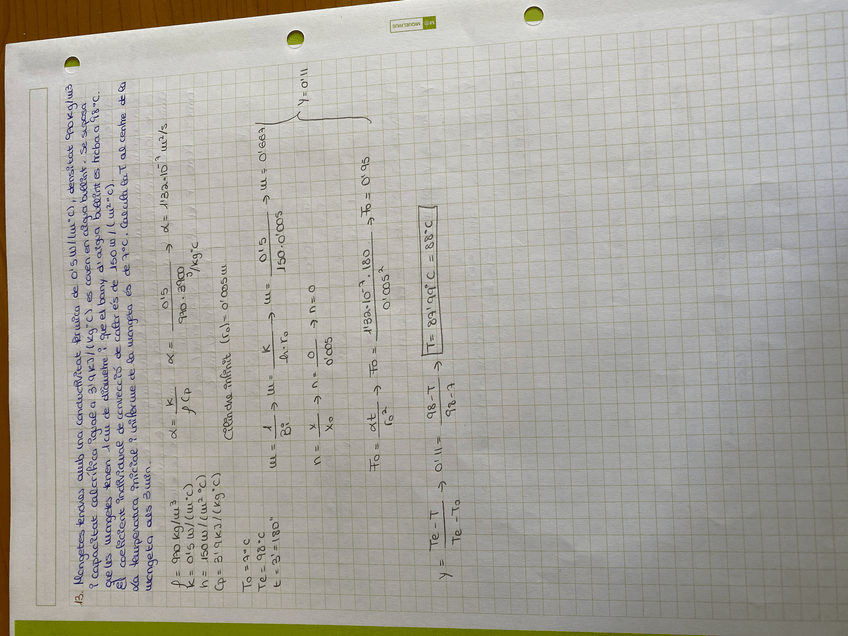 13. Mongetes tendres amb una conductivitat tèrmica de 0'5 W/(m°C), densitat 970 kg/m3
i capacitat calorífica igual a 3'9 kJ/(kg°C) es couen en aigua bullint. Se suposa
que les mongetes tenen 1 cm de diàmetre i que el bany d'aigua bullint es troba a 98°C.
El coeficient individual de convecció de calor és de 150 W/(m²°C).
La temperatura inicial i uniforme de la mongeta és de 7°C. Calcula la T al centre de la
mongeta als 3 min.
ρ = 970 kg/m³
K = 0'5 W/(m°C)
h = 150 W/(m²°C)
Cp = 3'9 kJ/(kg°C)
α = K / ρ Cp α = 0'5 / 970·3900 J/kg°C → α = 1'32·10⁻⁷ m²/s
T0 = 7°C
Te = 98°C
t = 3' = 180"
Cilindre infinit (r0) = 0'005 m
m = 1 / Bi → m = K / h·r0 → m = 0'5 / 150·0'005 → m = 0'667
n = x / x0 → n = 0 / 0'005 → n = 0
Y = 0'11
Fo = αt / r0² → Fo = 1'32·10⁻⁷·180 / 0'005² → Fo = 0'95
Y = Te - T / Te - T0 → 0'11 = 98 - T / 98 - 7 → T = 87'99°C = 88°C
MIQUELRIUS